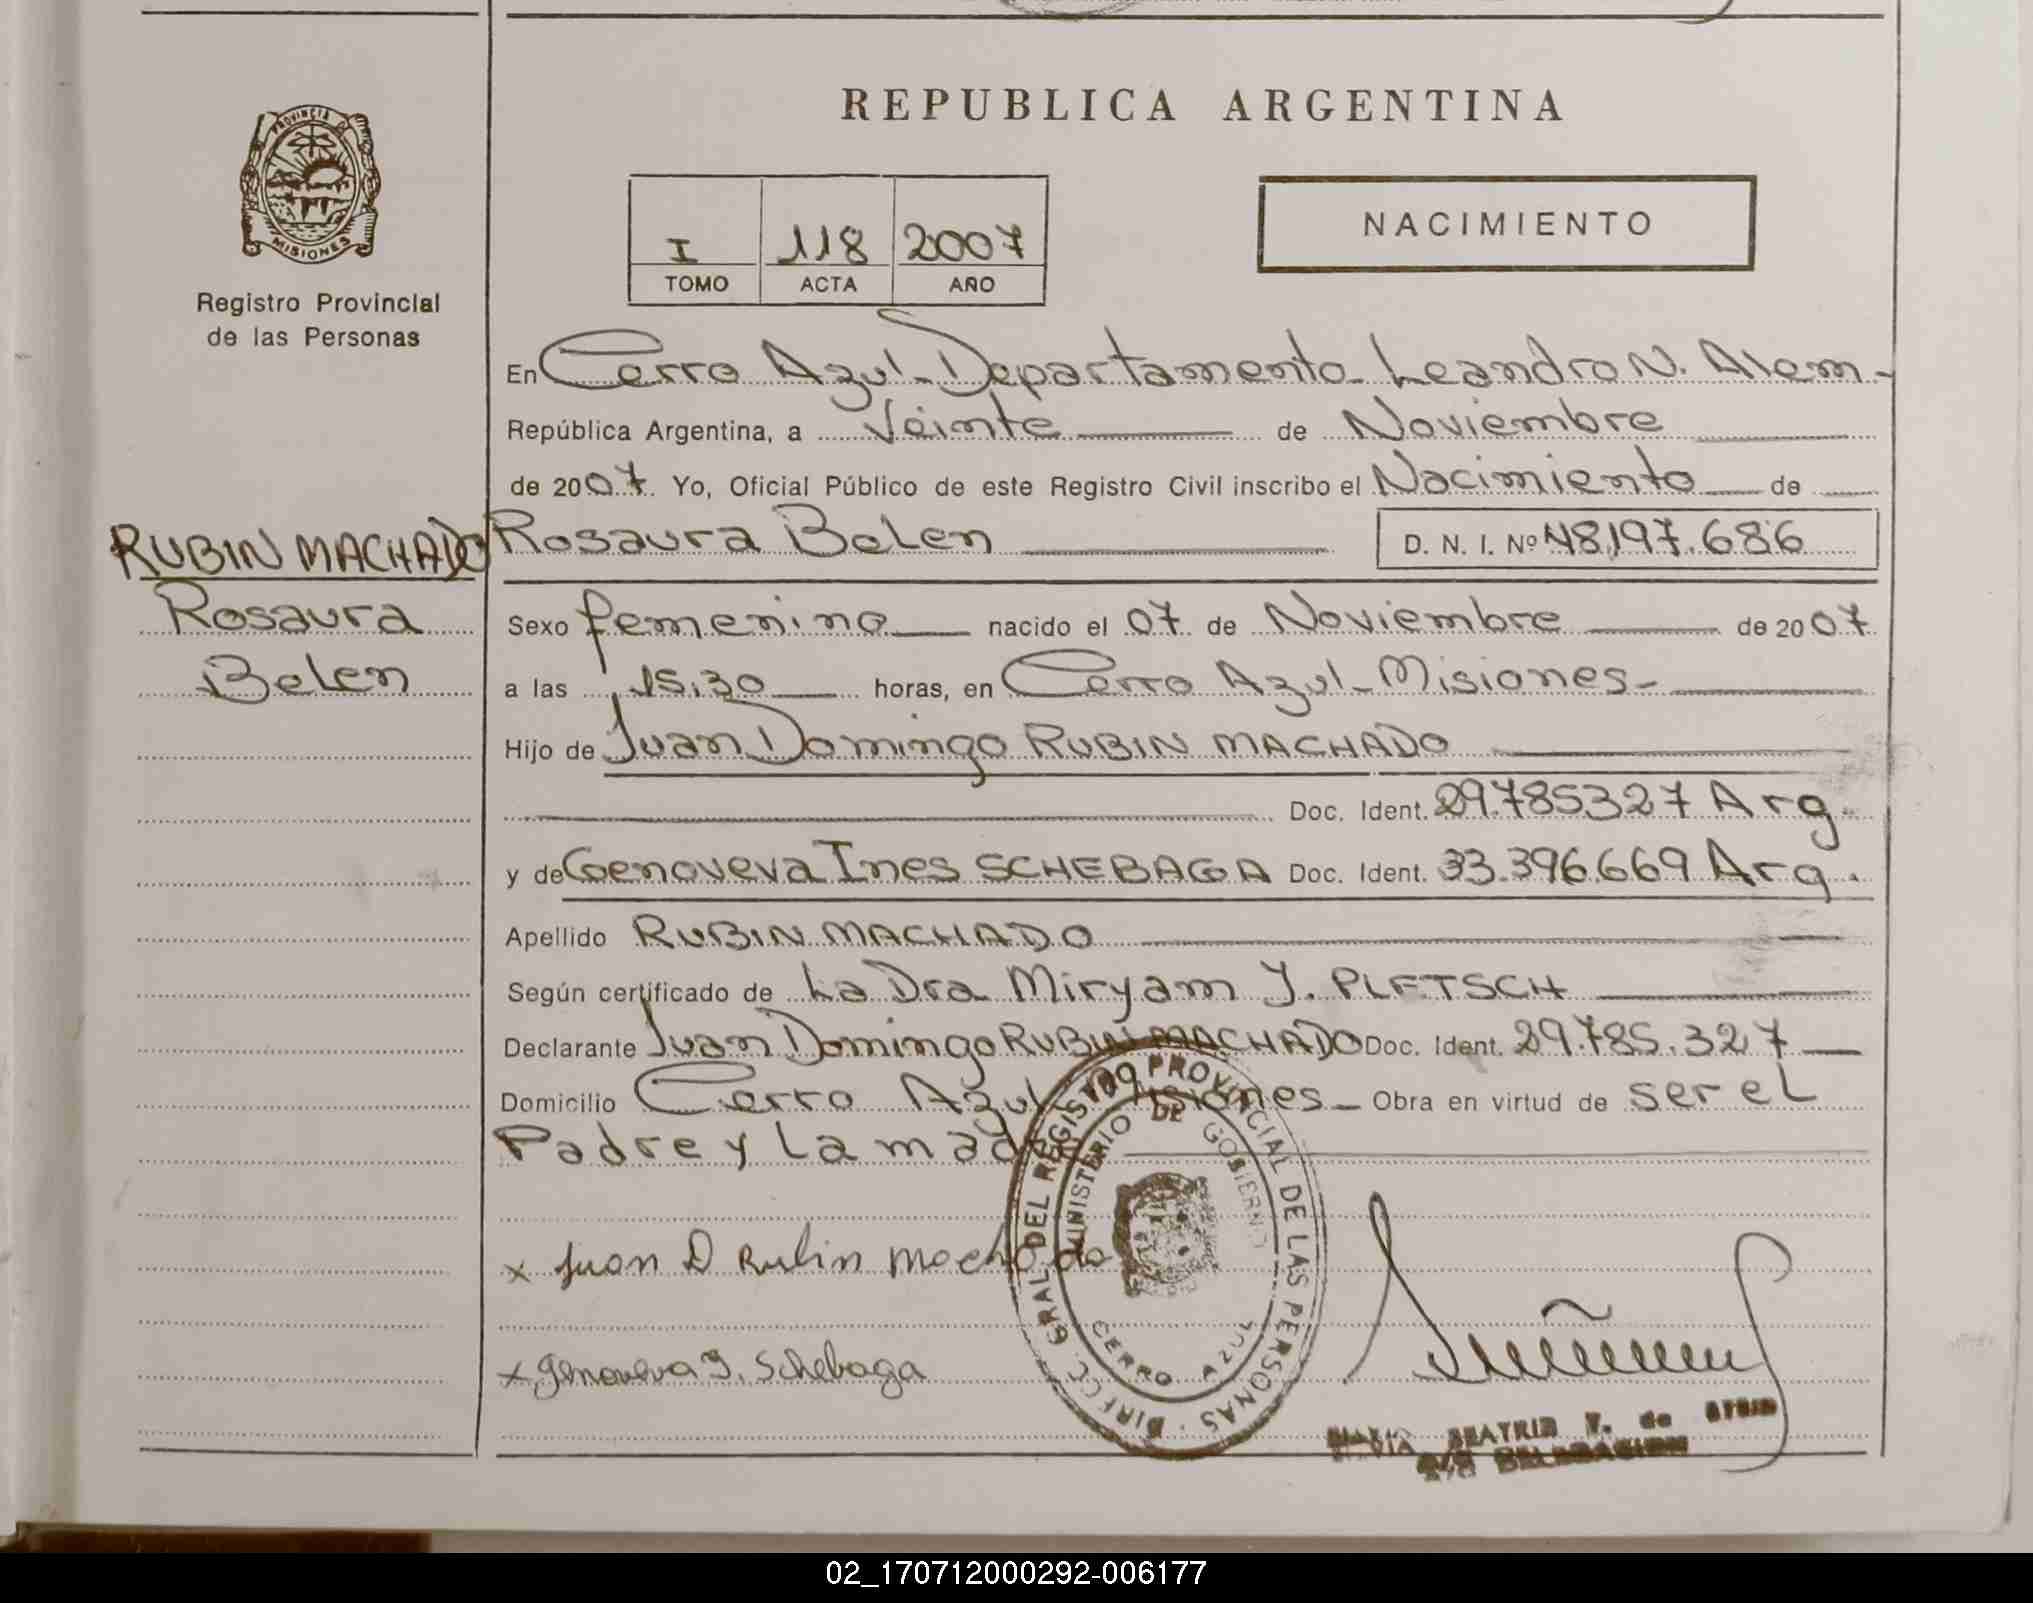 REPUBLICA ARGENTINA
PROVINCIA DE
MISIONES
Registro Provincial
de las Personas
I 118 2007
TOMO ACTA AÑO
NACIMIENTO
En Cerro Azul - Departamento Leandro N. Alem -
República Argentina, a Veinte de Noviembre
de 2007. Yo, Oficial Público de este Registro Civil inscribo el Nacimiento de
RUBIN MACHADO
Rosaura
Belen
Rosaura Belen D. N. I. Nº 48.197.686
Sexo femenino nacido el 07 de Noviembre de 2007
a las 15.30 horas, en Cerro Azul - Misiones -
Hijo de Juan Domingo RUBIN MACHADO
Doc. Ident. 29.785327 Arg.
y de Genoveva Ines SCHEBAGA Doc. Ident. 33.396.669 Arg.
Apellido RUBIN MACHADO
Según certificado de La Dra Miryam J. PLETSCH
Declarante Juan Domingo RUBIN MACHADO Doc. Ident. 29.785.327
Domicilio Cerro Azul Misiones - Obra en virtud de ser el
Padre y La madre
x Juan D Rubin Machado
x Genoveva I. Schebaga
DIRECC. GRAL DEL REGISTRO PROVINCIAL DE LAS PERSONAS
MINISTERIO DE GOBIERNO
CERRO AZUL
BEATRIZ V. de
DELEGACION
02_170712000292-006177